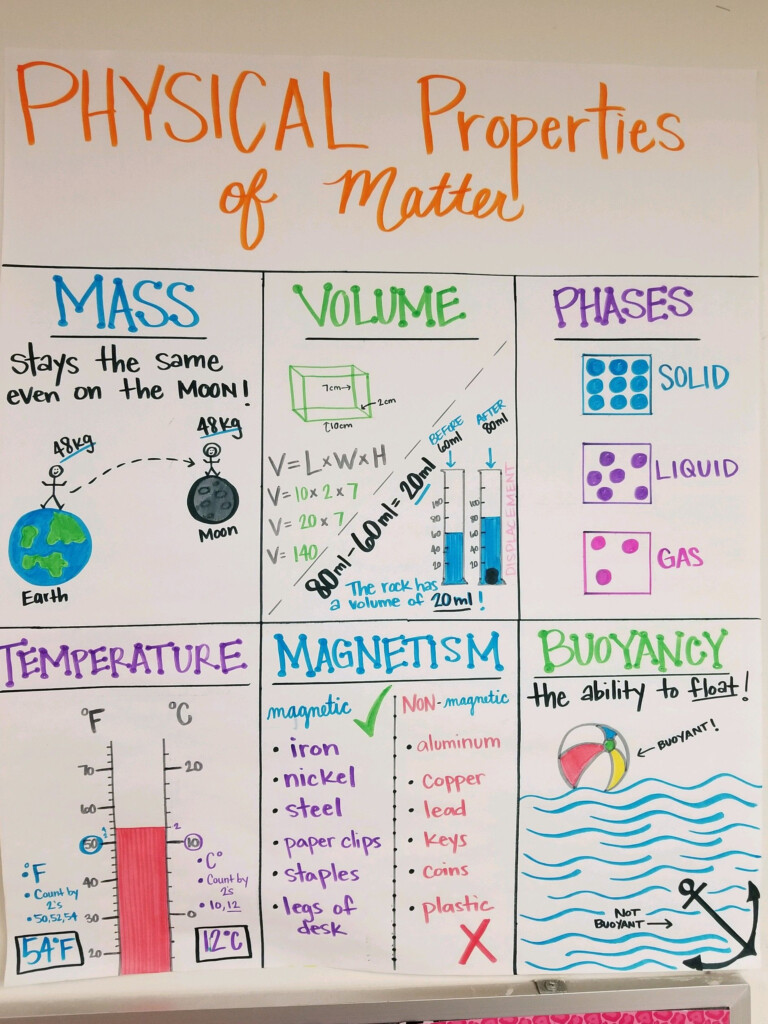 PHYSICAL Properties
of Matter
MASS
stays the same
even on the MOON!
48kg
48kg
Moon
Earth
VOLUME
7cm
2cm
10cm
V=L×W×H
V=10×2×7
V=20×7
V=140
80ml-60ml=20ml
BEFORE
60ml
AFTER
80ml
100
80
60
40
20
100
80
60
40
20
DISPLACEMENT
The rock has
a volume of 20ml!
PHASES
SOLID
LIQUID
GAS
TEMPERATURE
°F
°C
70
20
60
50
10
40
30
0
20
• °F
• Count by
2's
• 50,52,54
54°F
• C°
• Count by
2's
• 10,12
12°C
MAGNETISM
magnetic
• iron
• nickel
• steel
• paper clips
• staples
• legs of
desk
NON-magnetic
• aluminum
• copper
• lead
• keys
• coins
• plastic
BUOYANCY
the ability to float!
BUOYANT!
NOT
BUOYANT